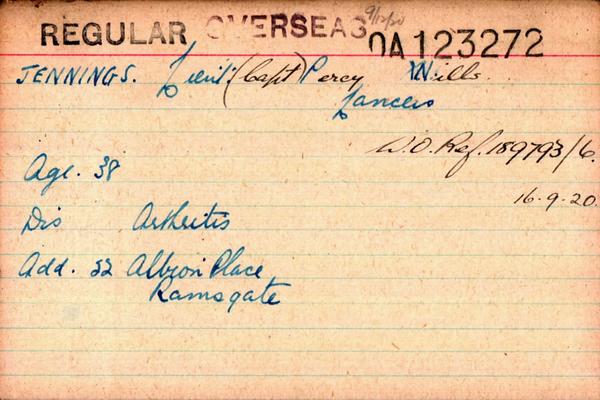 REGULAR OVERSEAS 9/12/20 OA 123272
JENNINGS. Lieut (Capt) Percy Wills
Lancers
W.O. Ref. 189793/6.
Age. 38
16.9.20.
Dis Arthritis
Add. 32 Albion Place
Ramsgate